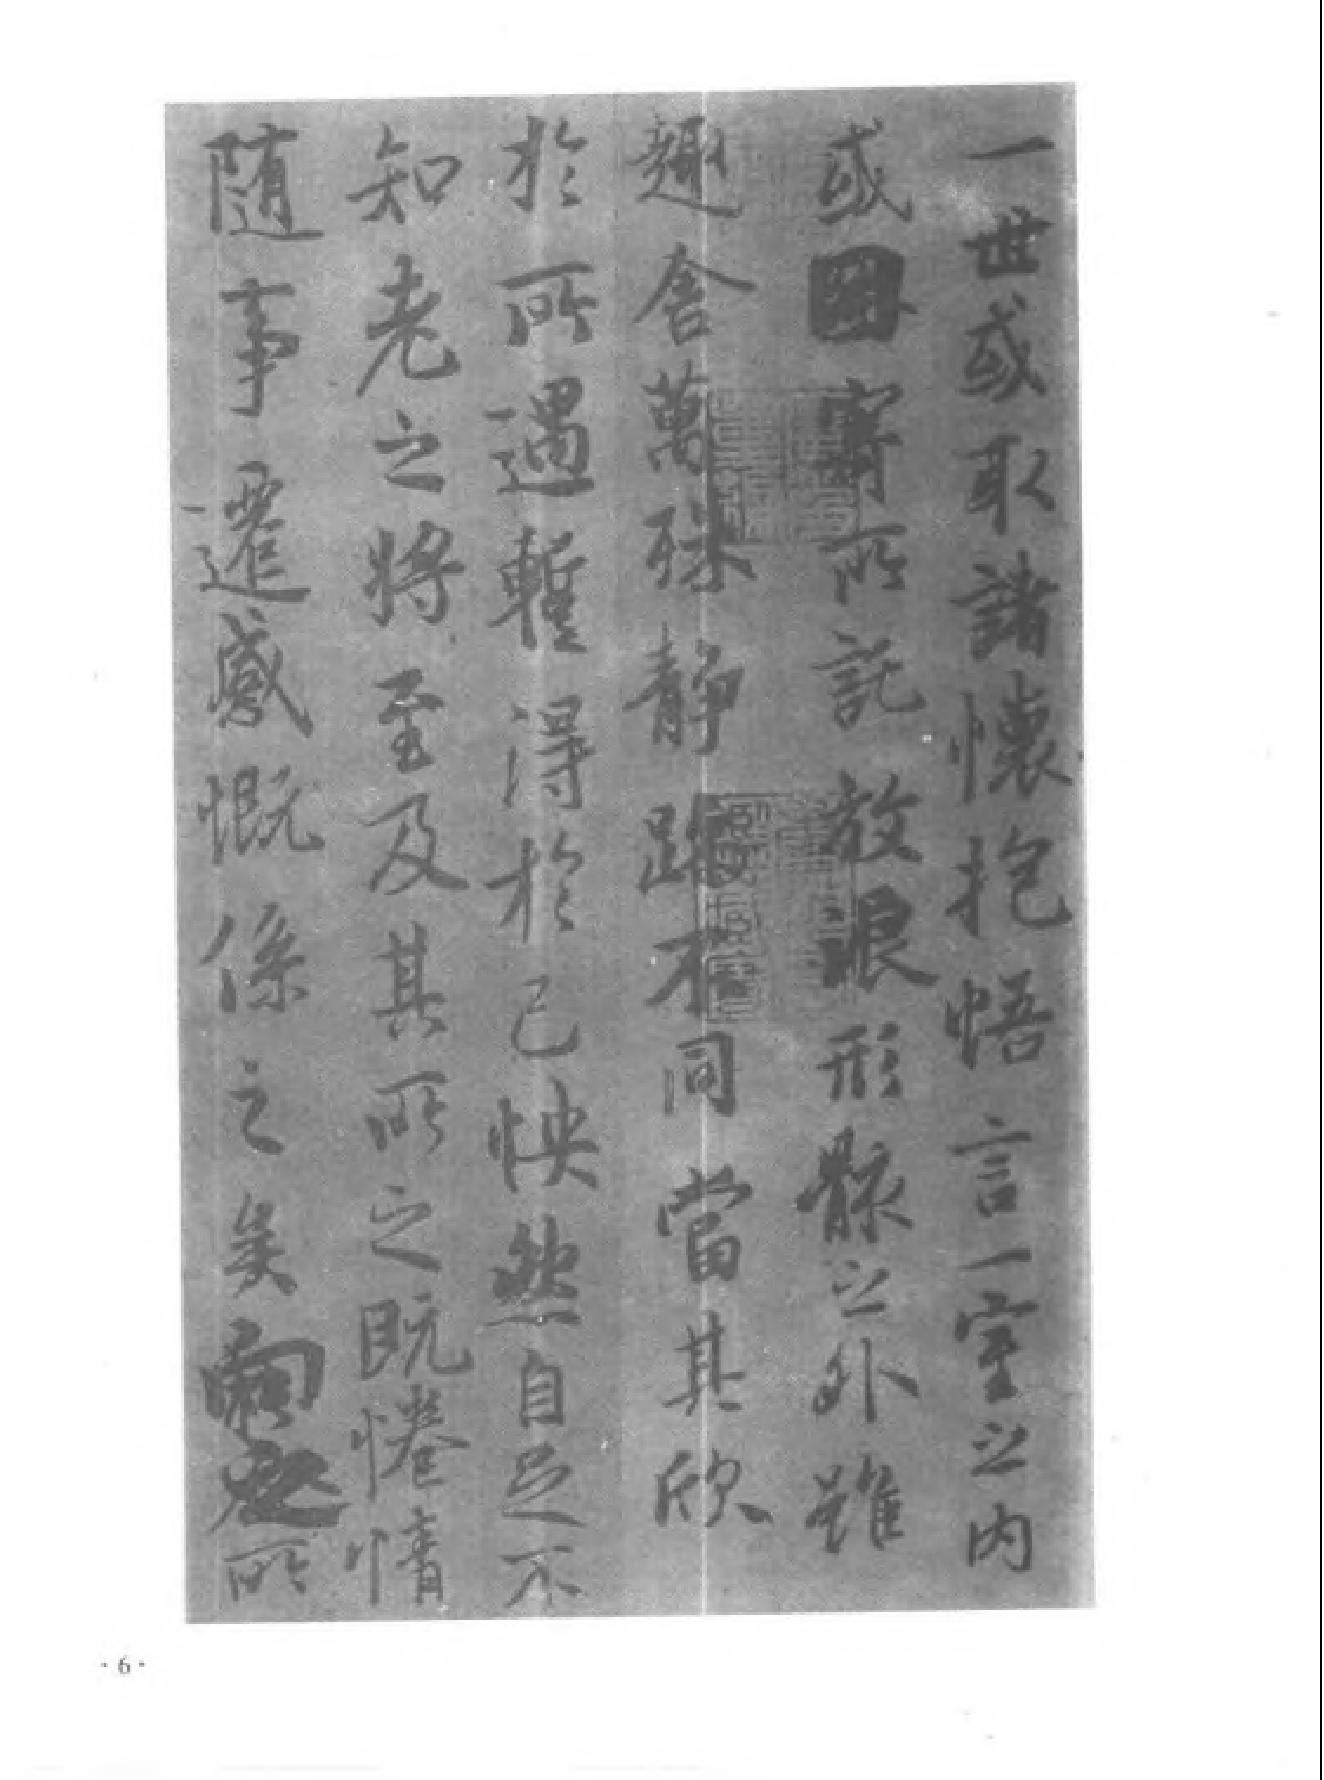 一世或取諸懷抱悟言一室之內
或因寄所託放浪形骸之外雖
趣舍萬殊静躁不同當其欣
於所遇暫得於己怏然自足不
知老之將至及其所之既惓情
隨事遷感慨係之矣向之所
·6·